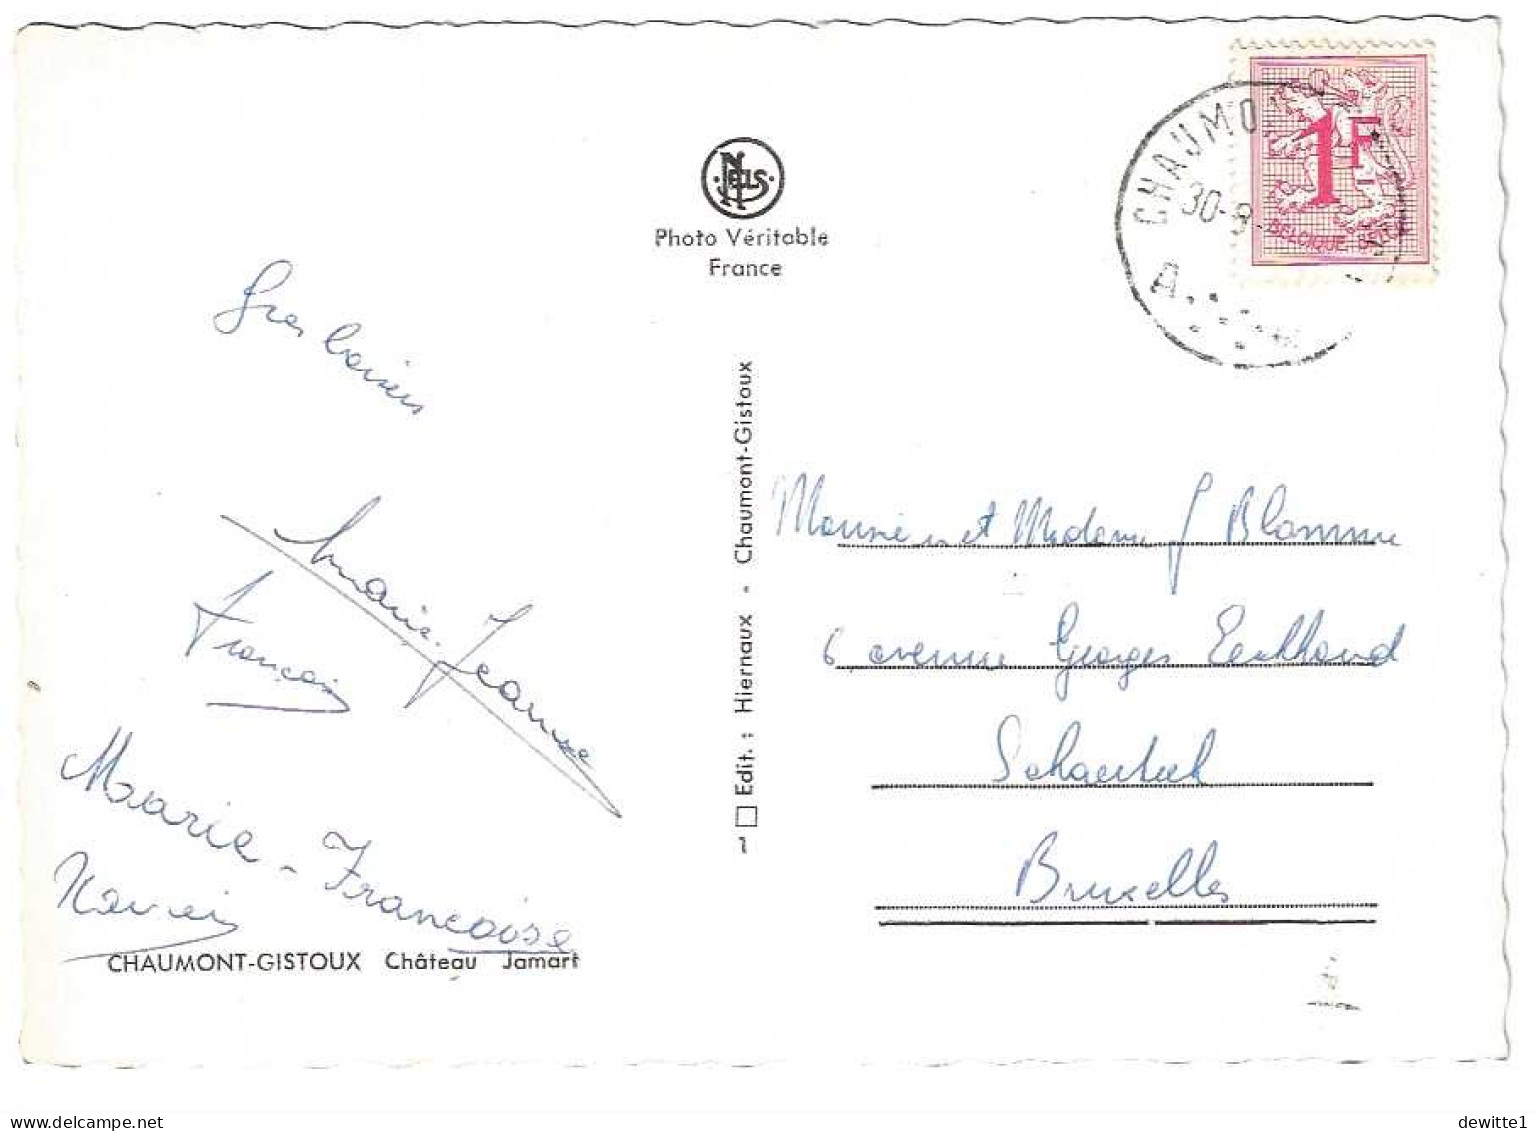 NELS
Photo Véritable
France
CHAUMO
30-8
A
1F
BELGIQUE BELGIË
Gros baisers
Marie-Jeanne
François
Marie-Françoise
Xavier
CHAUMONT-GISTOUX Château Jamart
1 Edit. : Hiernaux - Chaumont-Gistoux
Monsieur et Madame J Blamme
6 avenue Georges Eeckhoud
Schaerbeek
Bruxelles
dewitte1